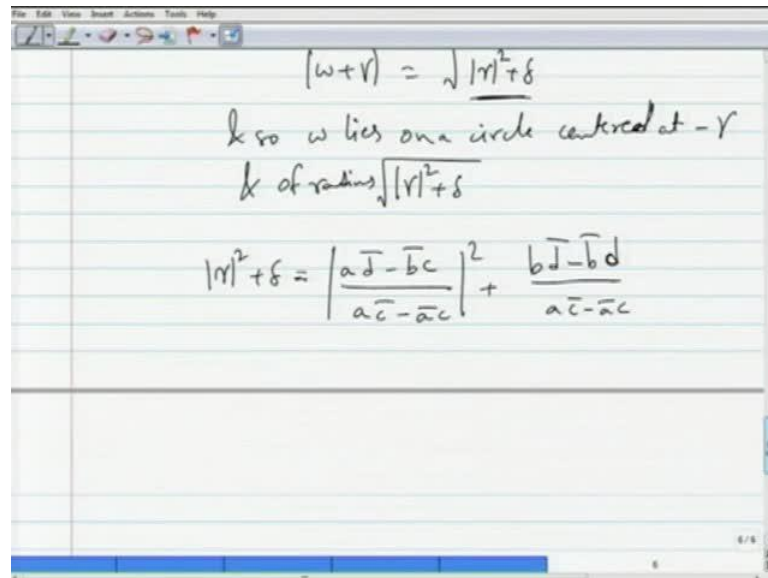 File Edit View Insert Actions Tools Help
|w+γ| = √|γ|²+δ
& so w lies on a circle centered at -γ
& of radius √|γ|²+δ
|γ|²+δ = |(a d̅ - b̅ c)/(a c̅ - a̅ c)|² + (b d̅ - b̅ d)/(a c̅ - a̅ c)
6/6
6